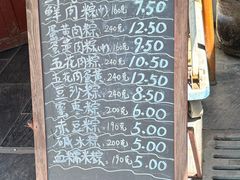 鲜肉粽(小)160克 7.50
蛋黄肉粽 240克 12.50
蛋黄肉粽(小)160克 9.50
五花肉粽 240克 10.50
五花肉蛋黄 240克 12.50
豆沙粽 240克 8.50
蜜枣粽 200克 6.00
赤豆粽 190克 5.00
碱水粽 200克 5.00
血糯米粽 190克 5.00